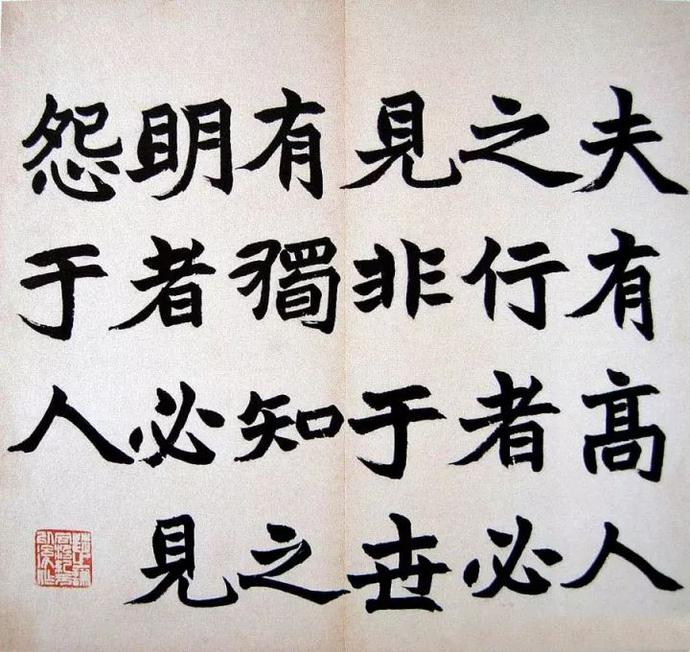 夫有高人
之行者必
見非于世
有獨知之
明者必見
怨于人